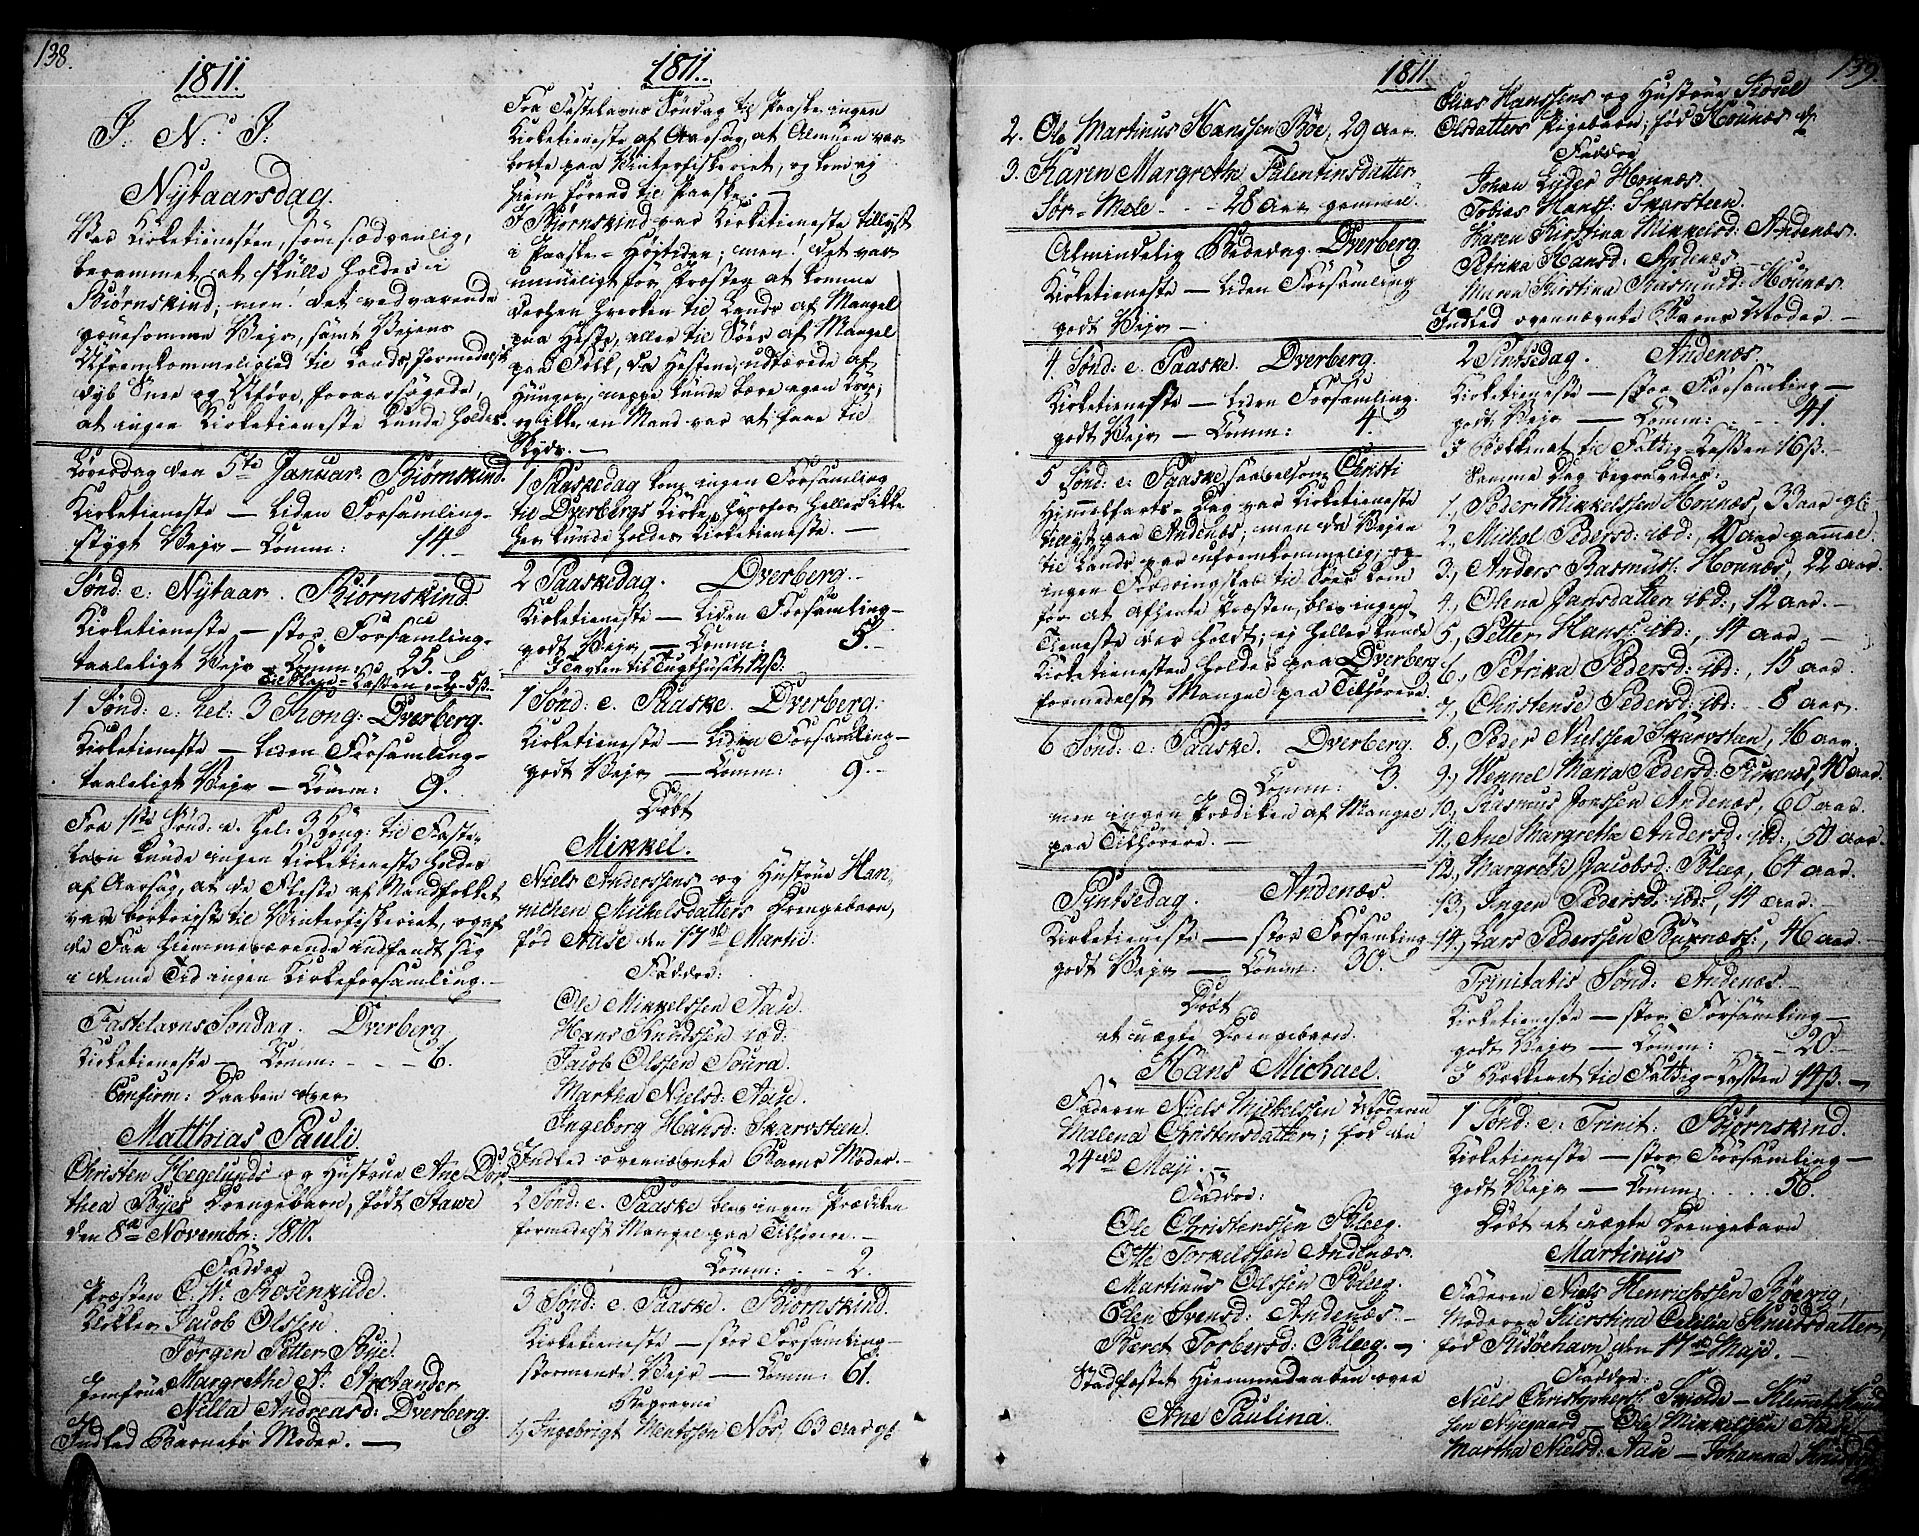 138.
1811.
I. N. I.
Nytaarsdag.
Var Kirketienesten, som sædvanlig,
berammet at skulle holdes i
Biørnskind; men! det vedvarende
gruesomme Vejr, samt Vejens
Ufremkommelighed til Lands, formedelst
dyb Snee og Uføre, foraarsagede
at ingen Kirketieneste kunde holdes.
Løverdag den 5te Januar. Biørnskind.
Kirketieneste — Liden Forsamling.
stygt Vejr — Comm: 14.
Sønd: e: Nytaar. Biørnskind.
Kirketieneste — stor Forsamling.
taaleligt Vejr — Comm: 25.
1 Sønd: e: hel: 3 Kong: Dverberg.
Kirketieneste — Liden Forsamling
taaleligt Vejr — Comm: 9.
Fra 1ste Sønd. e. Hel: 3 Kong: til Faste-
lavn kunde ingen Kirketieneste holdes
af Aarsag, at de Fleste af Mandfolket
vare bortreiste til Vinterfiskeriet, og af
de Faa hiemmeværende indfandt sig
i denne Tid ingen Kirkeforsamling.
Fastelavns Søndag. Dverberg.
Kirketieneste — Comm: - - - 6.
Confirm: Daaben over
Matthias Pauli.
Christen Hegelunds og Hustrue Ane Doro-
thea Byes Drengebarn, født Stawe
den 8de Novembr: 1810.
Faddre
Præsten C. W. Rosenkilde.
Klokker Jacob Olssen.
Jørgen Petter Bye.
Jomfrue Margrethe A: Arctander
Nilla Andreasd: Dverberg.
Indled Barnets Moder. —
1811.
Fra Fastelavns Søndag til Paaske ingen
Kirketieneste af Aarsag, at Almuen var
borte paa Vinterfiskeriet, og kom ej
hiem førend til Paaske. —
I Biørnskind var Kirketieneste tillyst
i Paaske-Høitiden; men! det var
umueligt for Præsten at komme
derhen hverken til Lands af Mangel
paa Heste, eller til Søes af Mangel
paa Folk, da Hestene, udtærede af
Hunger, neppe kunde bære egen Krop;
og ikke en Mand var at faae til
Skyds. —
1 Paaskedag kom ingen Forsamling
til Dverbergs Kirke, hvorfor heller ikke
her kunde holdes Kirketieneste. —
2 Paaskedag. Dverberg.
Kirketieneste — Liden Forsamling —
godt Vejr — Comm: 5. —
I Tavlen til Tugthuset 12 ß.
1 Sønd: e. Paaske. Dverberg.
Kirketieneste — Liden Forsamling —
godt Vejr — Comm: 9. —
Døbt
Mikkel.
Niels Anderssens og Hustrue Han-
nichen Mickelsdatters Drengebarn,
fød Aase den 17de Martii.
Faddre:
Ole Mikkelssen Aase.
Hans Knudssen ibd:
Jacob Olssen Soura.
Martha Nielsd: Aase.
Ingeborg Hansd: Skarvsteen.
Indled ovennævnte Barns Moder. —
2 Sønd: e. Paaske blev ingen Prædiken
formedelst Mangel paa Tilhørere. —
Comm: - - 2.
3 Sønd: e. Paaske. Biørnskind.
Kirketieneste — stor Forsamling —
stormende Vejr — Comm: 61.
Begravne
1, Ingebrigt Mentssøn Nøs, 63 Aar gl.
1811.
2. Ole Martinus Hanssen Bøe, 29 aar.
3. Karen Margrethe Falentinsdatter
Sør-Mele - - 28 Aar gammel.
Almindelig Bededag. Dverberg
Kirketieneste — Liden Forsamling
godt Vejr —
4 Sønd: e. Paaske. Dverberg.
Kirketieneste — Liden Forsamling.
godt Vejr — Comm: 4.
5 Sønd: e: Paaske saavelsom Christi
Himmelfarts-Dag var Kirketieneste
tillyst paa Andenæs; men da Vejen
til Lands var ufremkommelig, og
ingen Fordringskab til Søes kom
for at afhente Præsten, blev ingen
Tieneste der holdt; ej heller kunde
Kirketienesten holdes paa Dverberg
formedelst Mangel paa Tilhørere.
6 Sønd: e: Paaske. Dverberg.
Comm: 3.
men ingen Prædiken af Mangel
paa Tilhørere. —
Pintsedag. Andenæs.
Kirketieneste — stor Forsamling
godt Vejr — Comm: 30.
Døbt
et uægte Drengebarn.
Hans Michael.
Faderen Niels Mickelssen Moderen
Malena Christensdatter; fød den
24de Maji. —
Faddre:
Ole Christenssen Bleeg.
Otte Torkelssen Andenæs.
Martinus Olssen Bleeg.
Elen Svensd: Andenæs.
Beret Torbersd: Bleeg. —
Stadfæstet Hiemmedaaben over
Ane Paulina.
139.
Elias Hanssens og Hustrue Kosel
Olsdatters Pigebarn; fød Hounæs d:
Faddre
Johan Lyder Hounæs.
Tobias Hanss: Skarsteen.
Karen Kirstina Mikkelsd: Andenæs.
Petrika Hansd: Andenæs.
Maren Kirstina Rasmusd: Hounæs.
Indled ovennævnte Barns Moder. —
2 Pintsedag. Andenæs.
Kirketieneste — stor Forsamling —
godt Vejr — Comm: - - - 41.
I Bekkenet til Fattig-Kassen 16 ß.
Samme Dag begravedes:
1, Peder Mikkelssen Hounæs, 33 aar gl:
2, Mickel Pedersd: ibd:, 20 aar gammel.
3, Anders Rasmuss: Hounæs, 22 aar.
4, Olena Jansdatter ibd:, 12 aar. —
5, Petter Hanss: ibd:, 14 aar. —
6, Petrika Pedersd: ibd:, 15 aar.
7, Christense Pedersd: ibd: - 8 aar.
8, Peder Nielssen Skarvsten, 16 aar.
9, Wennel Maria Pedersd: Fiskenæs, 40 aar.
10, Rasmus Jonssen Andenæs, 60 aar.
11, Ane Margretha Andersd: ibd:, 50 aar.
12, Margrete Jacobsd: Bleeg, 64 aar.
13, Inger Pedersd: ibd:, 14 aar. —
14, Lars Pederssen Burnæss:, 46 aar. —
Trinitatis Sønd: Andenæs.
Kirketieneste — stor Forsamling —
godt Vejr — Comm: - 20. —
I Bekkenet til Fattig-Kassen 14 ß. —
1 Sønd: e: Trinit: Biørnskind.
Kirketieneste — stor Forsamling —
godt Vejr — Comm: - - - 56.
Døbt et uægte Drengebarn
Martinus
Faderen Niels Henrichssen Røevig,
Moderen Kierstina Cecelia Knudsdatter,
fød Risøehavn den 17de Maji. —
Faddre:
Niels Christophers: — Klemmet
sen Nyegaard — Ole Mikkelssen Aase
Martha Nielsd: Aase — Johanna